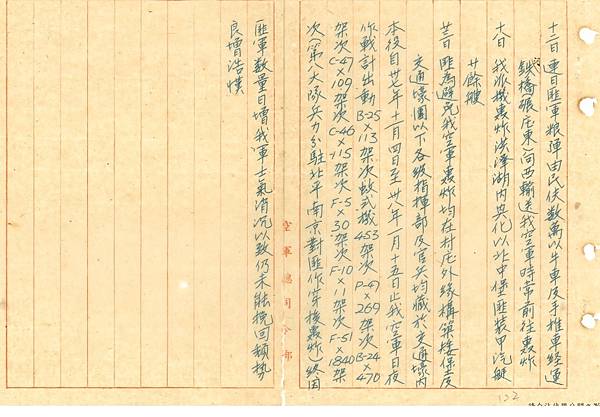 十二日 連日匪軍粮彈由民伕数萬以牛車及手推車経運
鉄橋碾庄東向西輸送我空軍時常前往轟炸
十八日 我派機轟炸洪澤湖內興化以北中堡匪裝甲汽艇
廿餘艘
廿三日 匪為避免我空軍轟炸均在村庄外緣構築接保及
交通壕團以下各級指揮部及官兵均藏於交通壕內
本役自卅七年十一月四日至卅八年一月十五日止我空軍日夜
作戰計出動B-25×113架次蚊式機453架次P-47×269架次B-24×470
架次C-47×109架次C-46×115架次F-5×30架次F-10×11架次F-51×1840架
次(第八大隊兵力分駐北平南京對匪作穿梭轟炸)終因
空軍總司令部
匪軍数量日增我軍士氣消沉以致仍未能挽回頽勢
良增浩愾
122